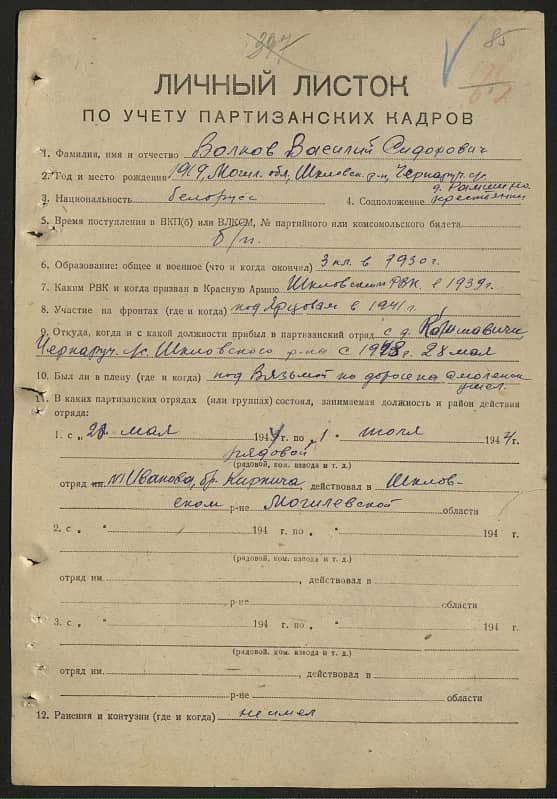 297
85
ЛИЧНЫЙ ЛИСТОК
ПО УЧЕТУ ПАРТИЗАНСКИХ КАДРОВ
1. Фамилия, имя и отчество Волков Василий Сидорович
2. Год и место рождения 1919, Могил. обл, Шкловск. р-н, Чернаруч. с/с
3. Национальность белорусс 4. Соцположение крестьянин
5. Время поступления в ВКП(б) или ВЛКСМ, № партийного или комсомольского билета
б/п.
6. Образование: общее и военное (что и когда окончил) 3 кл. в 1930 г.
7. Каким РВК и когда призван в Красную Армию Шкловским РВК в 1939 г.
8. Участие на фронтах (где и когда) под Ярцовам в 1941 г.
9. Откуда, когда и с какой должности прибыл в партизанский отряд с д.
Чернаруч. с/с. Шкловского р-на с 28 мая
10. Был ли в плену (где и когда) под Вязьмой по дороге на Смоленск
11. В каких партизанских отрядах (или группах) состоял, занимаемая должность и район действия
отряда:
1. с „ 28 мая 194 г. по „ 1 " июля 194 г.
рядовой
(рядовой, ком. взвода и т. д.)
отряд им. Иванова, бр. Кирпича, действовал в Шклов-
ском р-не Могилевской области
2. с „ " 194 г. по „ " 194 г.
(рядовой, ком. взвода и т. д.)
отряд им. , действовал в
р-не области
3. с „ " 194 г. по „ " 194 г.
(рядовой, ком. взвода и т. д.)
отряд им. , действовал в
р-не области
12. Ранения и контузии (где и когда) не имел